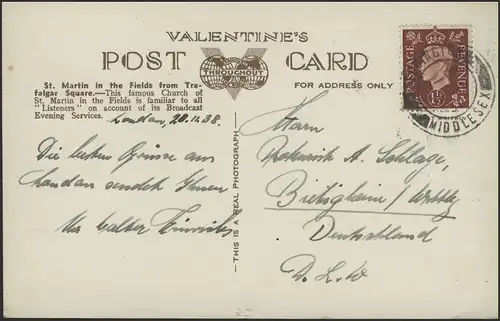 VALENTINE'S
POST CARD
THROUGHOUT
FOR ADDRESS ONLY
St. Martin in the Fields from Tra-
falgar Square.—This famous Church of
St. Martin in the Fields is familiar to all
"Listeners" on account of its Broadcast
Evening Services.
London, 20.11.38.
Die besten Grüsse aus
London sendet Ihnen
Ihr Walter
—THIS IS A REAL PHOTOGRAPH—
POSTAGE REVENUE
MIDDLESEX
Herrn
A. Schlage,
Bietigheim / Württbg
Deutschland